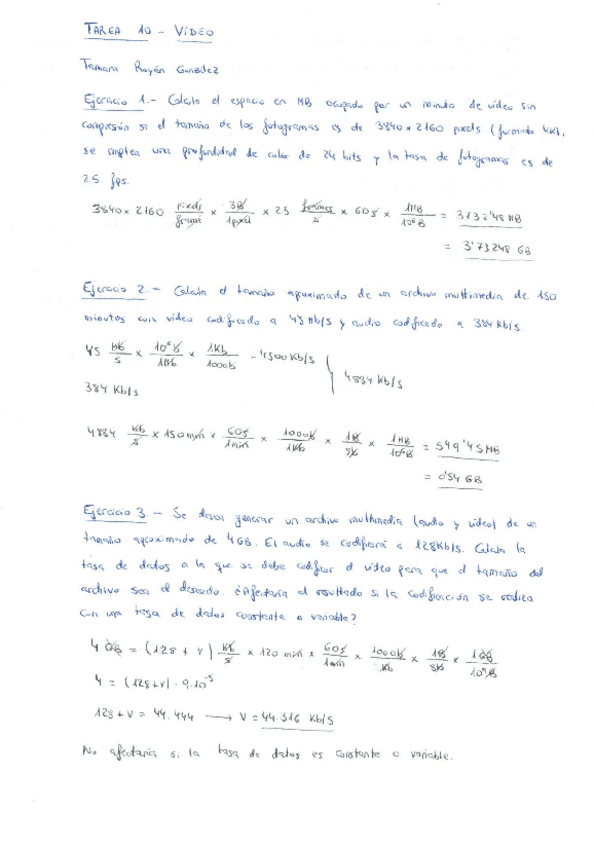 TAREA 10 - VÍDEO
Tamara Royán González
Ejercicio 1.- Calcula el espacio en MB ocupado por un minuto de vídeo sin
compresión si el tamaño de los fotogramas es de 3840 x 2160 pixels (formato 4K),
se emplea una profundidad de color de 24 bits y la tasa de fotogramas es de
25 fps.
3840 x 2160 pixels/frame x 3B/1pixel x 25 frames/s x 60s x 1MB/10⁶B = 3732'48 MB
= 3'73248 GB
Ejercicio 2.- Calcula el tamaño aproximado de un archivo multimedia de 150
minutos con vídeo codificado a 45 Mb/s y audio codificado a 384 Kb/s
45 Mb/s x 10⁶b/1Mb x 1Kb/1000b - 4500 Kb/s
384 Kb/s
4884 Kb/s
4884 Kb/s x 150 min x 60s/1min x 1000b/1Kb x 1B/8b x 1MB/10⁶B = 549'45 MB
= 0'54 GB
Ejercicio 3.- Se desea generar un archivo multimedia (audio y vídeo) de un
tamaño aproximado de 4 GB. El audio se codificará a 128 Kb/s. Calcula la
tasa de datos a la que se debe codificar el vídeo para que el tamaño del
archivo sea el deseado. ¿Afectaría al resultado si la codificación se realiza
con una tasa de datos constante o variable?
4 GB = (128 + V) Kb/s x 120 min x 60s/1min x 1000b/1Kb x 1B/8b x 1GB/10⁹B
4 = (128+V) · 9·10⁻⁵
128 + V = 44.444 → V = 44.316 Kb/s
No afectaría si la tasa de datos es constante o variable.